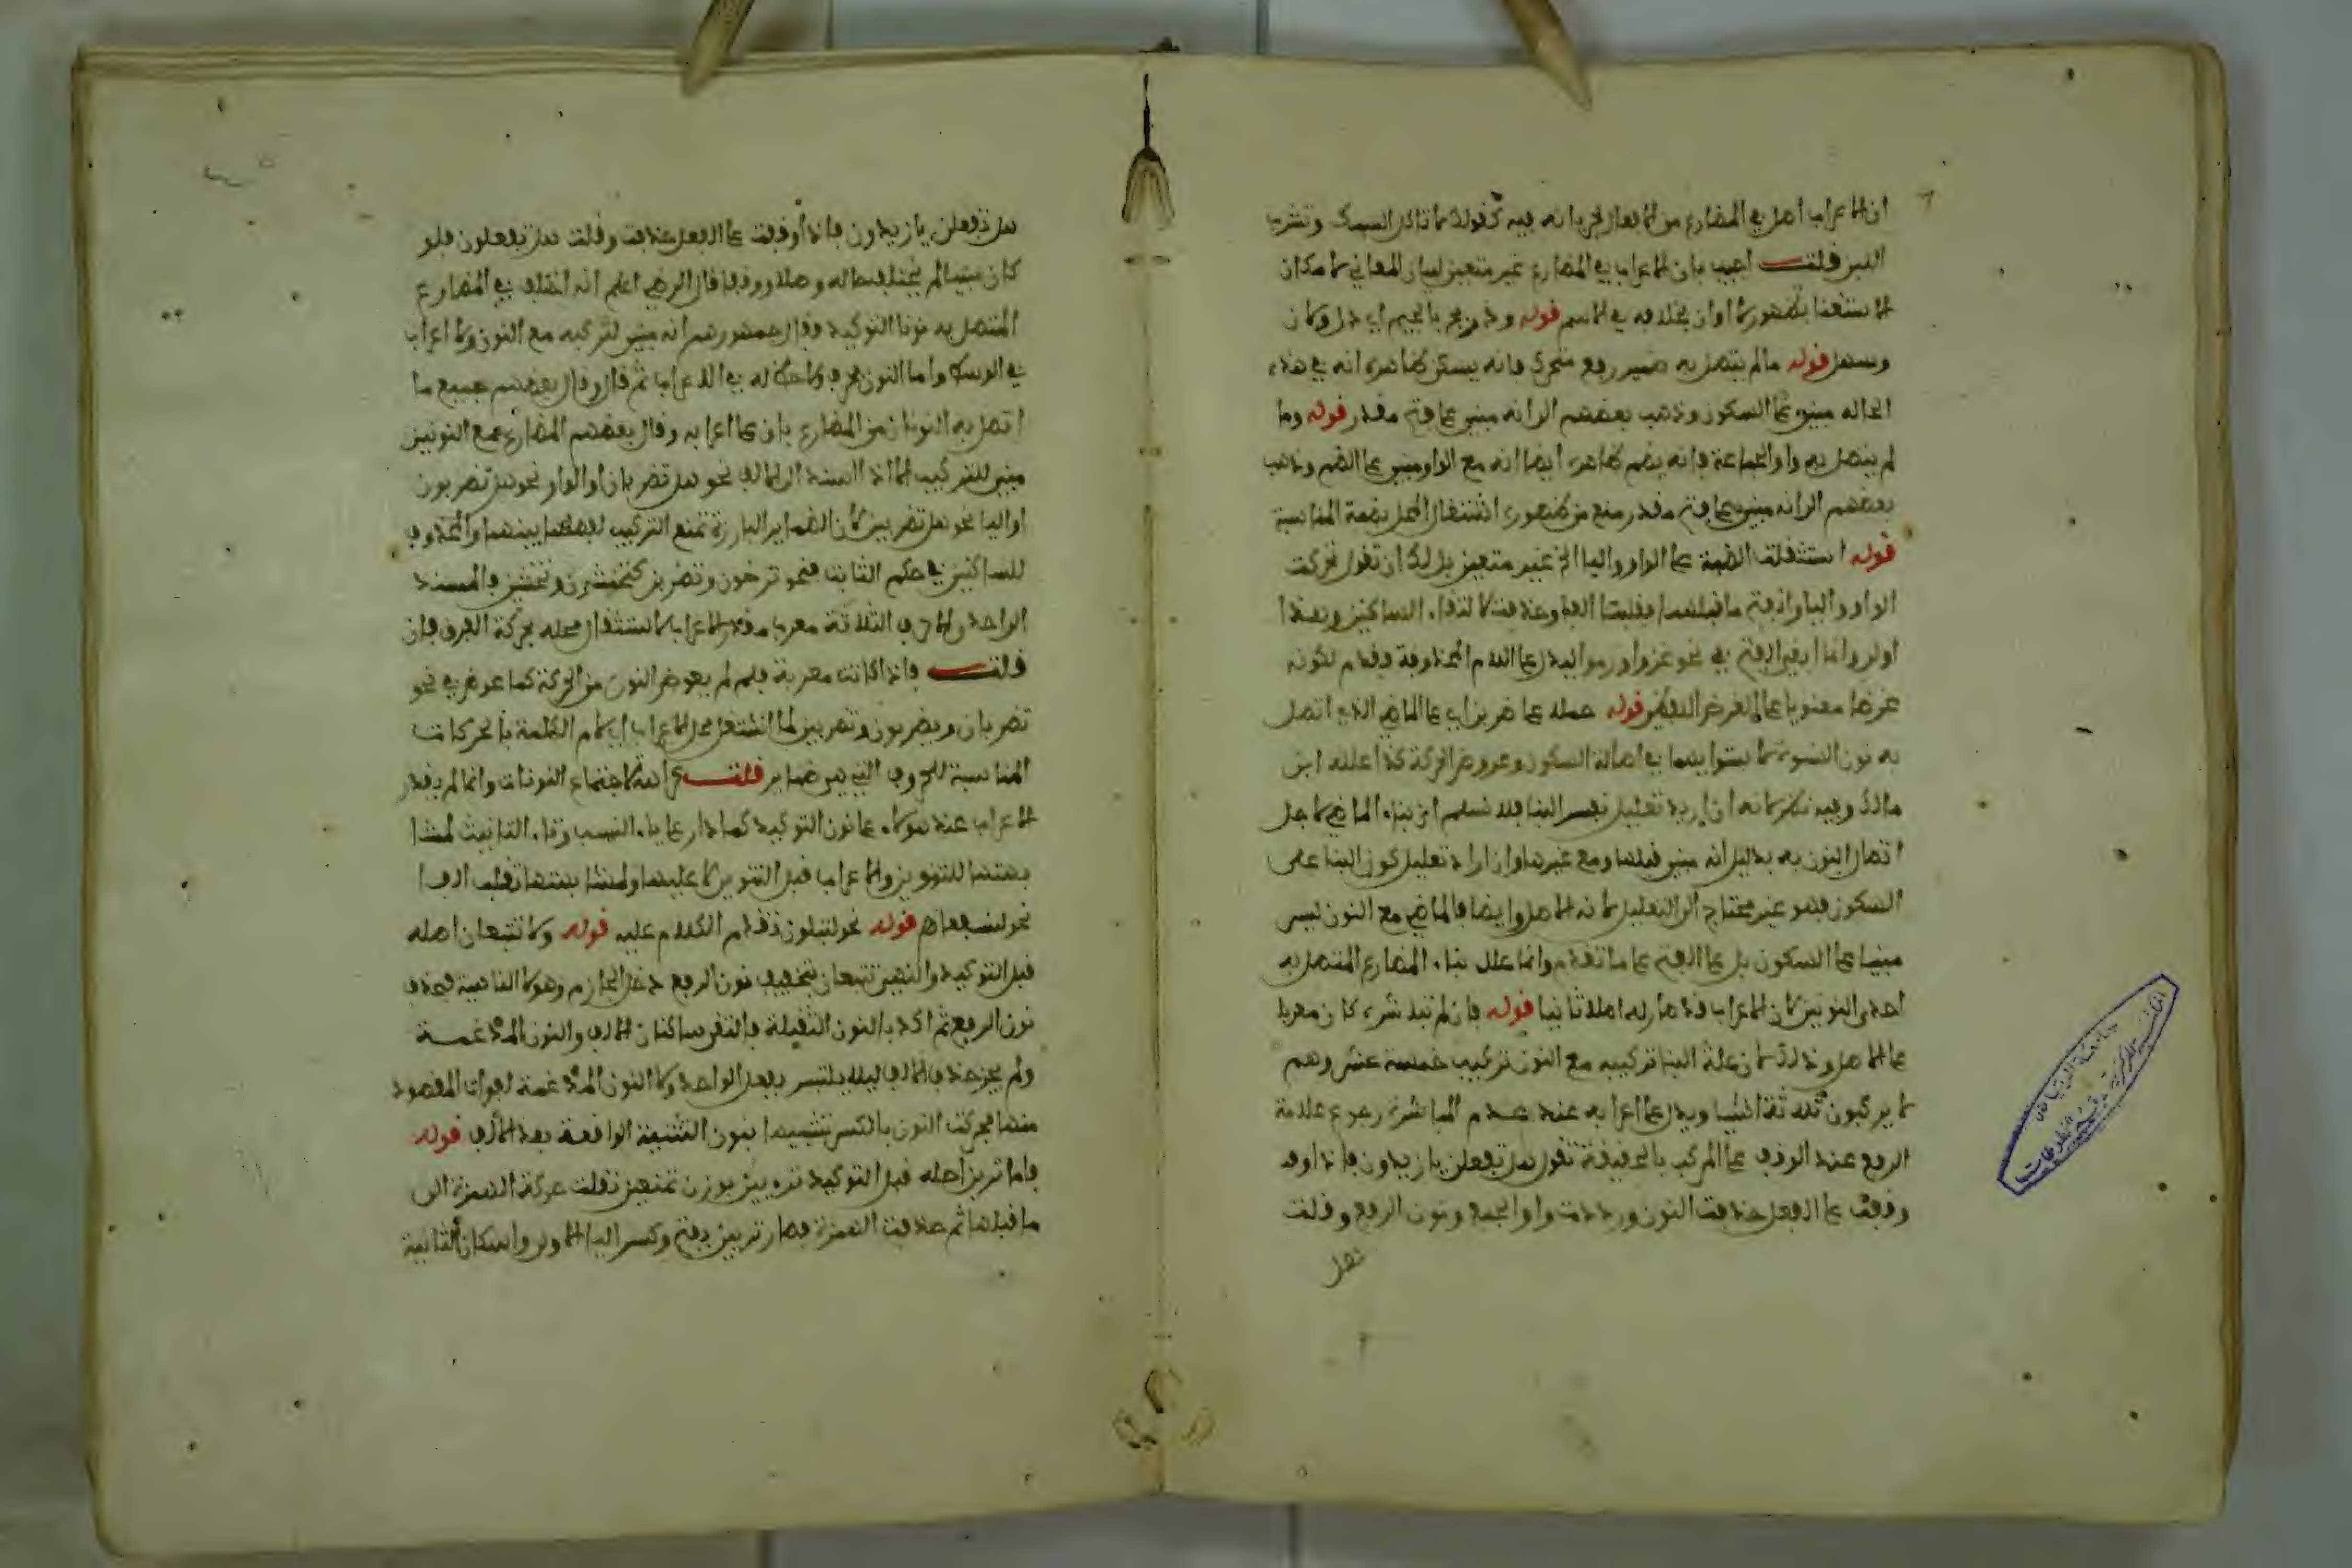 ان الاعراب اصل في المضارع من الافعال لجريانه فيه كقولك لا تاكل السمك وتشرب
اللبن قلت اجيب بان الاعراب في المضارع غير متعين لبيان المعاني لامكان
الاستغنا بظهور ان اوان بخلافه في الاسم قوله ودحرج بالجيم اي ذل وكان
وسهل قوله مالم يتصل به ضمير رفع متحرك فانه يسكن ظاهره انه في هذه
الحاله مبني على السكون وذهب بعضهم الى انه مبني على فتح مقدر قوله وما
لم يتصل به واو الجماعة فانه يضم ظاهره ايضا انه مع الواو مبني على الضم وذهب
بعضهم الى انه مبني على فتح مقدر منع من ظهوره اشتغال المحل بضمة المناسبة
قوله استثقلت الضمة على الواو واليا الخ غير متعين بل لك ان تقول تحركت
الواو واليا وانفتح ما قبلهما فقلبتا الفا وحذفت لالتقاء الساكنين وهذا
اولى وانما ابقي الفتح في نحو غزوا ورموا ليدل على اللام المحذوفة وقدم لكونه
غرضا معنويا على الغرض اللفظي قوله حمله على ضربن اي على الماضي الذي اتصل
به نون النسوة لاستوايهما في اصالة السكون وعروض الحركة كذا علله ابن
مالك وفيه نظر لانه ان اريد تعليل نفس البنا فلا نسلم ان بناء الماضي لاجل
اتصال النون به بدليل انه مبني قبلها ومع غيرها وان اراد تعليل كون البنا على
السكون فهو غير محتاج الى التعليل لانه الاصل وايضا فالماضي مع النون ليس
مبنيا على السكون بل على الفتح على ما تقدم وانما علل بناء المضارع المتصل به
احدى النونين لان الاعراب قد صار له اصلا ثانيا قوله فان لم تباشر كان معربا
على الاصل وذلك لان علة البنا تركيبه مع النون تركيب خمسة عشر وهم
لا يركبون ثلاثة اشيا ويدل على اعرابه عند عدم المباشرة رجوع علامة
الرفع عند الوقف على المركب بالخفيفة تقول هل تفعلن يا زيدون فاذا
وقفت على الفعل حذفت النون ورددت واو الجمع ونون الرفع وقلت
هل
هل تفعلن يا زيدون فاذا وقفت على الفعل حذفت وقلت هل تفعلون فلو
كان مبنيا لم يختلف حاله وصلا ووقفا قال الرضي اعلم انه اختلف في المضارع
المتصل به نونا التوكيد فقال جمهورهم انه مبني لتركبه مع النون ولا اعراب
في الوسط واما النون فحرف ولا حظ له في الاعراب ثم قال وقال بعضهم جميع ما
اتصل به النونان من المضارع باق على اعرابه وقال بعضهم المضارع مع النونين
مبني للتركيب الا اذا اسند الى الالف نحو هل تضربان او الواو نحو هل تضربون
او اليا نحو هل تضربين لان الضماير البارزة تمنع التركيب لفصلها بينهما والمحذوف
للساكنين في حكم الثابت فنحو ترضون وتضربن كتخشون وتخشين فالمسند
الواحد والاحرف الثلاثة معربا مقدر الاعراب لاشتغال محله بحركة الفرق فان
قلت فاذا كانت معربة فلم لم يعوض النون من الحركة كما عوض في نحو
تضربان ويضربون وتضربين لما اشتغل محل الاعراب اي لام الكلمة بالحركات
المناسبة للحروف التي هي ضماير قلت كراهة لاجتماع النونات وانما لم يقدر
الاعراب عند هولاء على نون التوكيد كما دار على ياء النسب وتاء التانيث
للتنوين والاعراب قبل التنوين لا عليها
نحو لنسفعا قوله نحو لتبلون تقدم الكلام عليه قوله ولا تتبعان اصله
قبل التوكيد والنهي تتبعان بتخفيف نون الرفع دخل الجازم وهو لا الناهية فحذف
نون الرفع ثم اكد بالنون الثقيلة فالتقى ساكنان الالف والنون المدغمة
ولم يجز حذف الالف ليلا يلتبس بفعل الواحد ولا النون المدغمة لفوات المقصود
منها فحركت النون بالكسر تشبيها بنون التثنية الواقعة بعد الالف قوله
فاما ترين اصله قبل التوكيد ترءيين بوزن تمنعين نقلت حركة الهمزة الى
ما قبلها ثم حذفت الهمزة فصار تريين بفتح وكسر اليا الاولى واسكان الثانية